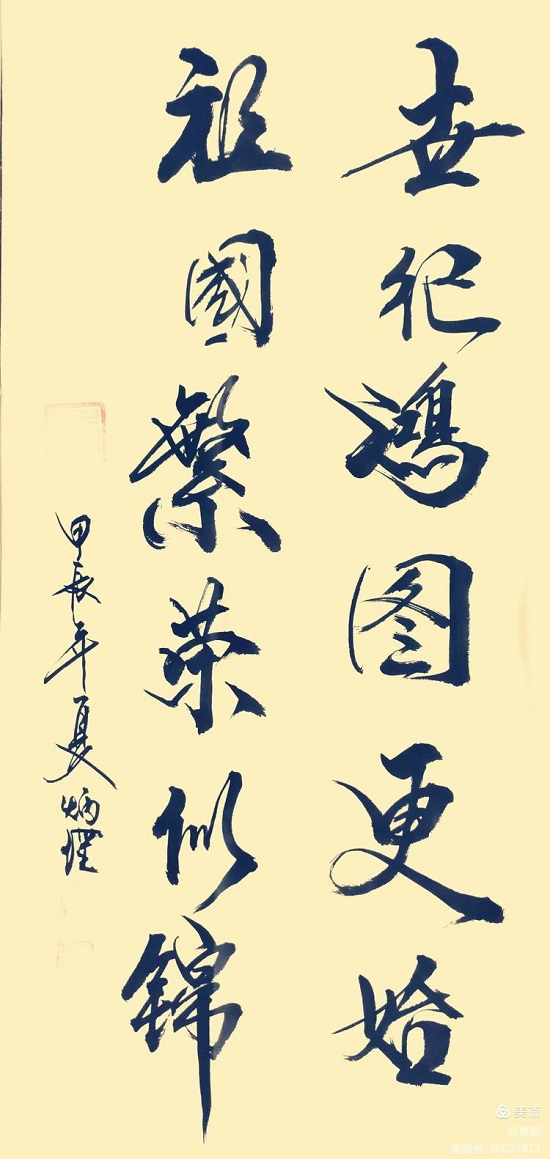 世纪鸿图更始
祖國繁荣似锦
甲辰年夏炳煋
美篇
美篇号: 26024813